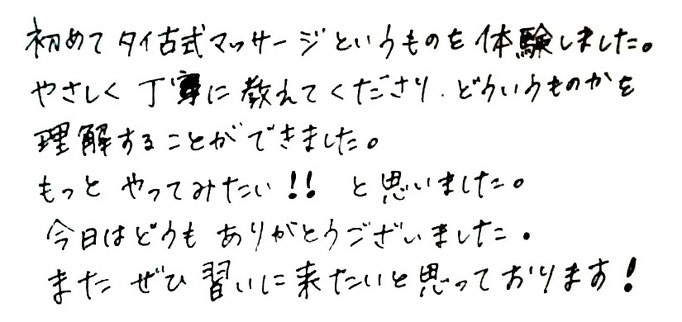 初めてタイ古式マッサージというものを体験しました。
やさしく丁寧に教えてくださり、どういうものかを
理解することができました。
もっとやってみたい!! と思いました。
今日はどうもありがとうございました。
またぜひ習いに来たいと思っております!